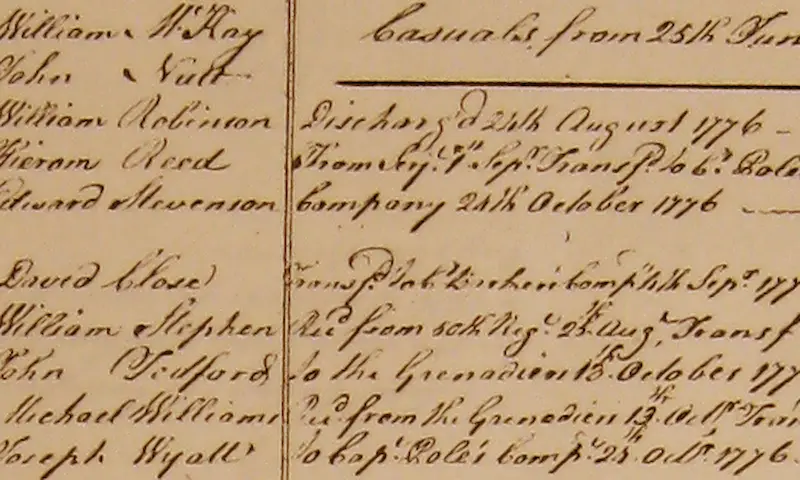 William McKay
Casuals from 25th Jun
John Nutt
William Robinson Discharg'd 24th August 1776
Hieram Reed From Serjt. 1st Sepr. Transfd. to Ct. Pole
Edward Stevenson Company 24th October 1776
David Close Transfd. to Ct. Comp 4th Sepr. 177
William Stephen Recd from 50th Regt. 25th Augt. Transf
John Tedford to the Grenadiers 13th October 177
Michael Williams Recd from the Grenadiers 13th Octr. Trans
Joseph Wyatt to Capt. Pole's Compy. 25th Octr. 1776